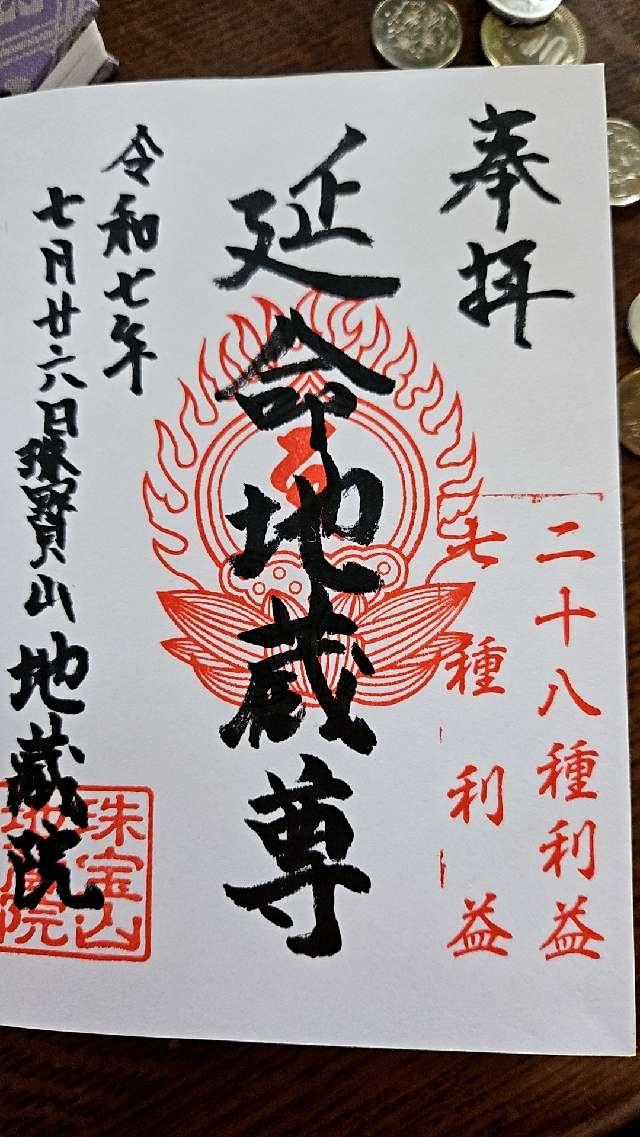 奉拝
二十八種利益
七種利益
延命地蔵尊
令和七年
七月廿六日珠寳山地蔵院
珠宝山
地蔵院